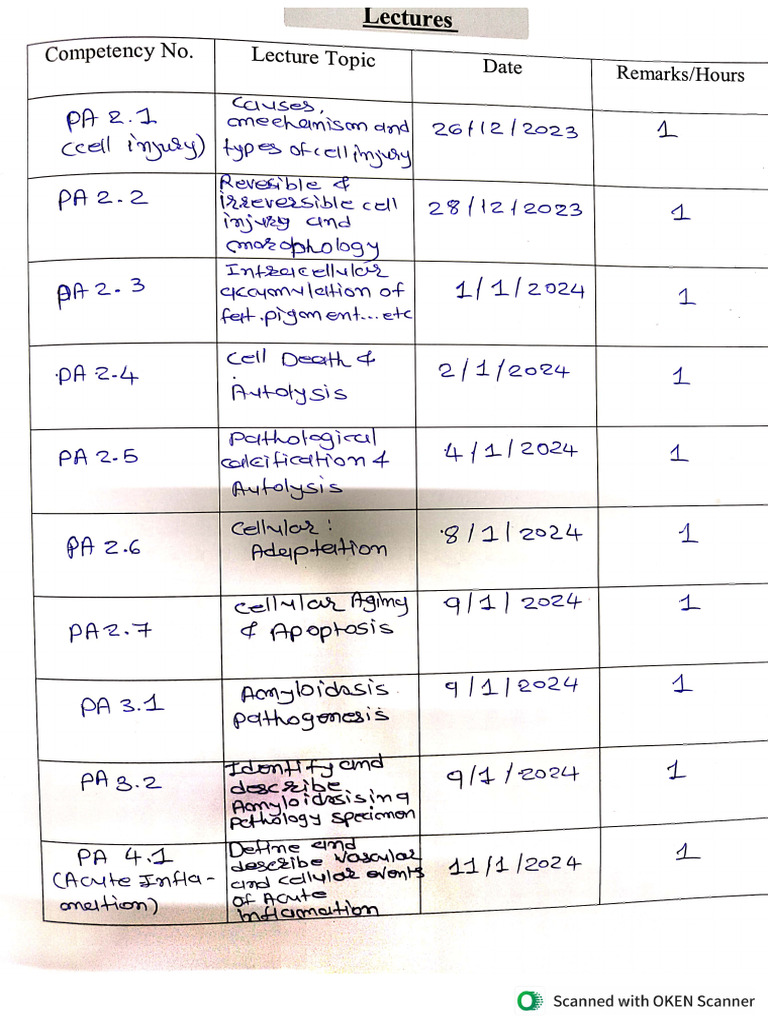 Lectures
Competency No. Lecture Topic Date Remarks/Hours
PA 2.1
(cell injury)
causes,
mechanism and
types of cell injury
26/12/2023
1
PA 2.2
Revesible &
irreversible cell
injury and
morophology
28/12/2023
1
PA 2.3
Intracellular
accumulation of
fat.pigment...etc
1/1/2024
1
PA 2.4
Cell Death &
Autolysis
2/1/2024
1
PA 2.5
Pathological
calcification &
Autolysis
4/1/2024
1
PA 2.6
Cellular:
Adaptation
8/1/2024
1
PA 2.7
Cellular Aging
& Apoptosis
9/1/2024
1
PA 3.1
Amyloidosis
pathogenesis
9/1/2024
1
PA 3.2
Identify and
describe
Amyloidosis in a
Pathology specimen
9/1/2024
1
PA 4.1
(Acute Infla-
mation)
Define and
describe vascular
and cellular events
of Acute
inflamation
11/1/2024
1
Scanned with OKEN Scanner